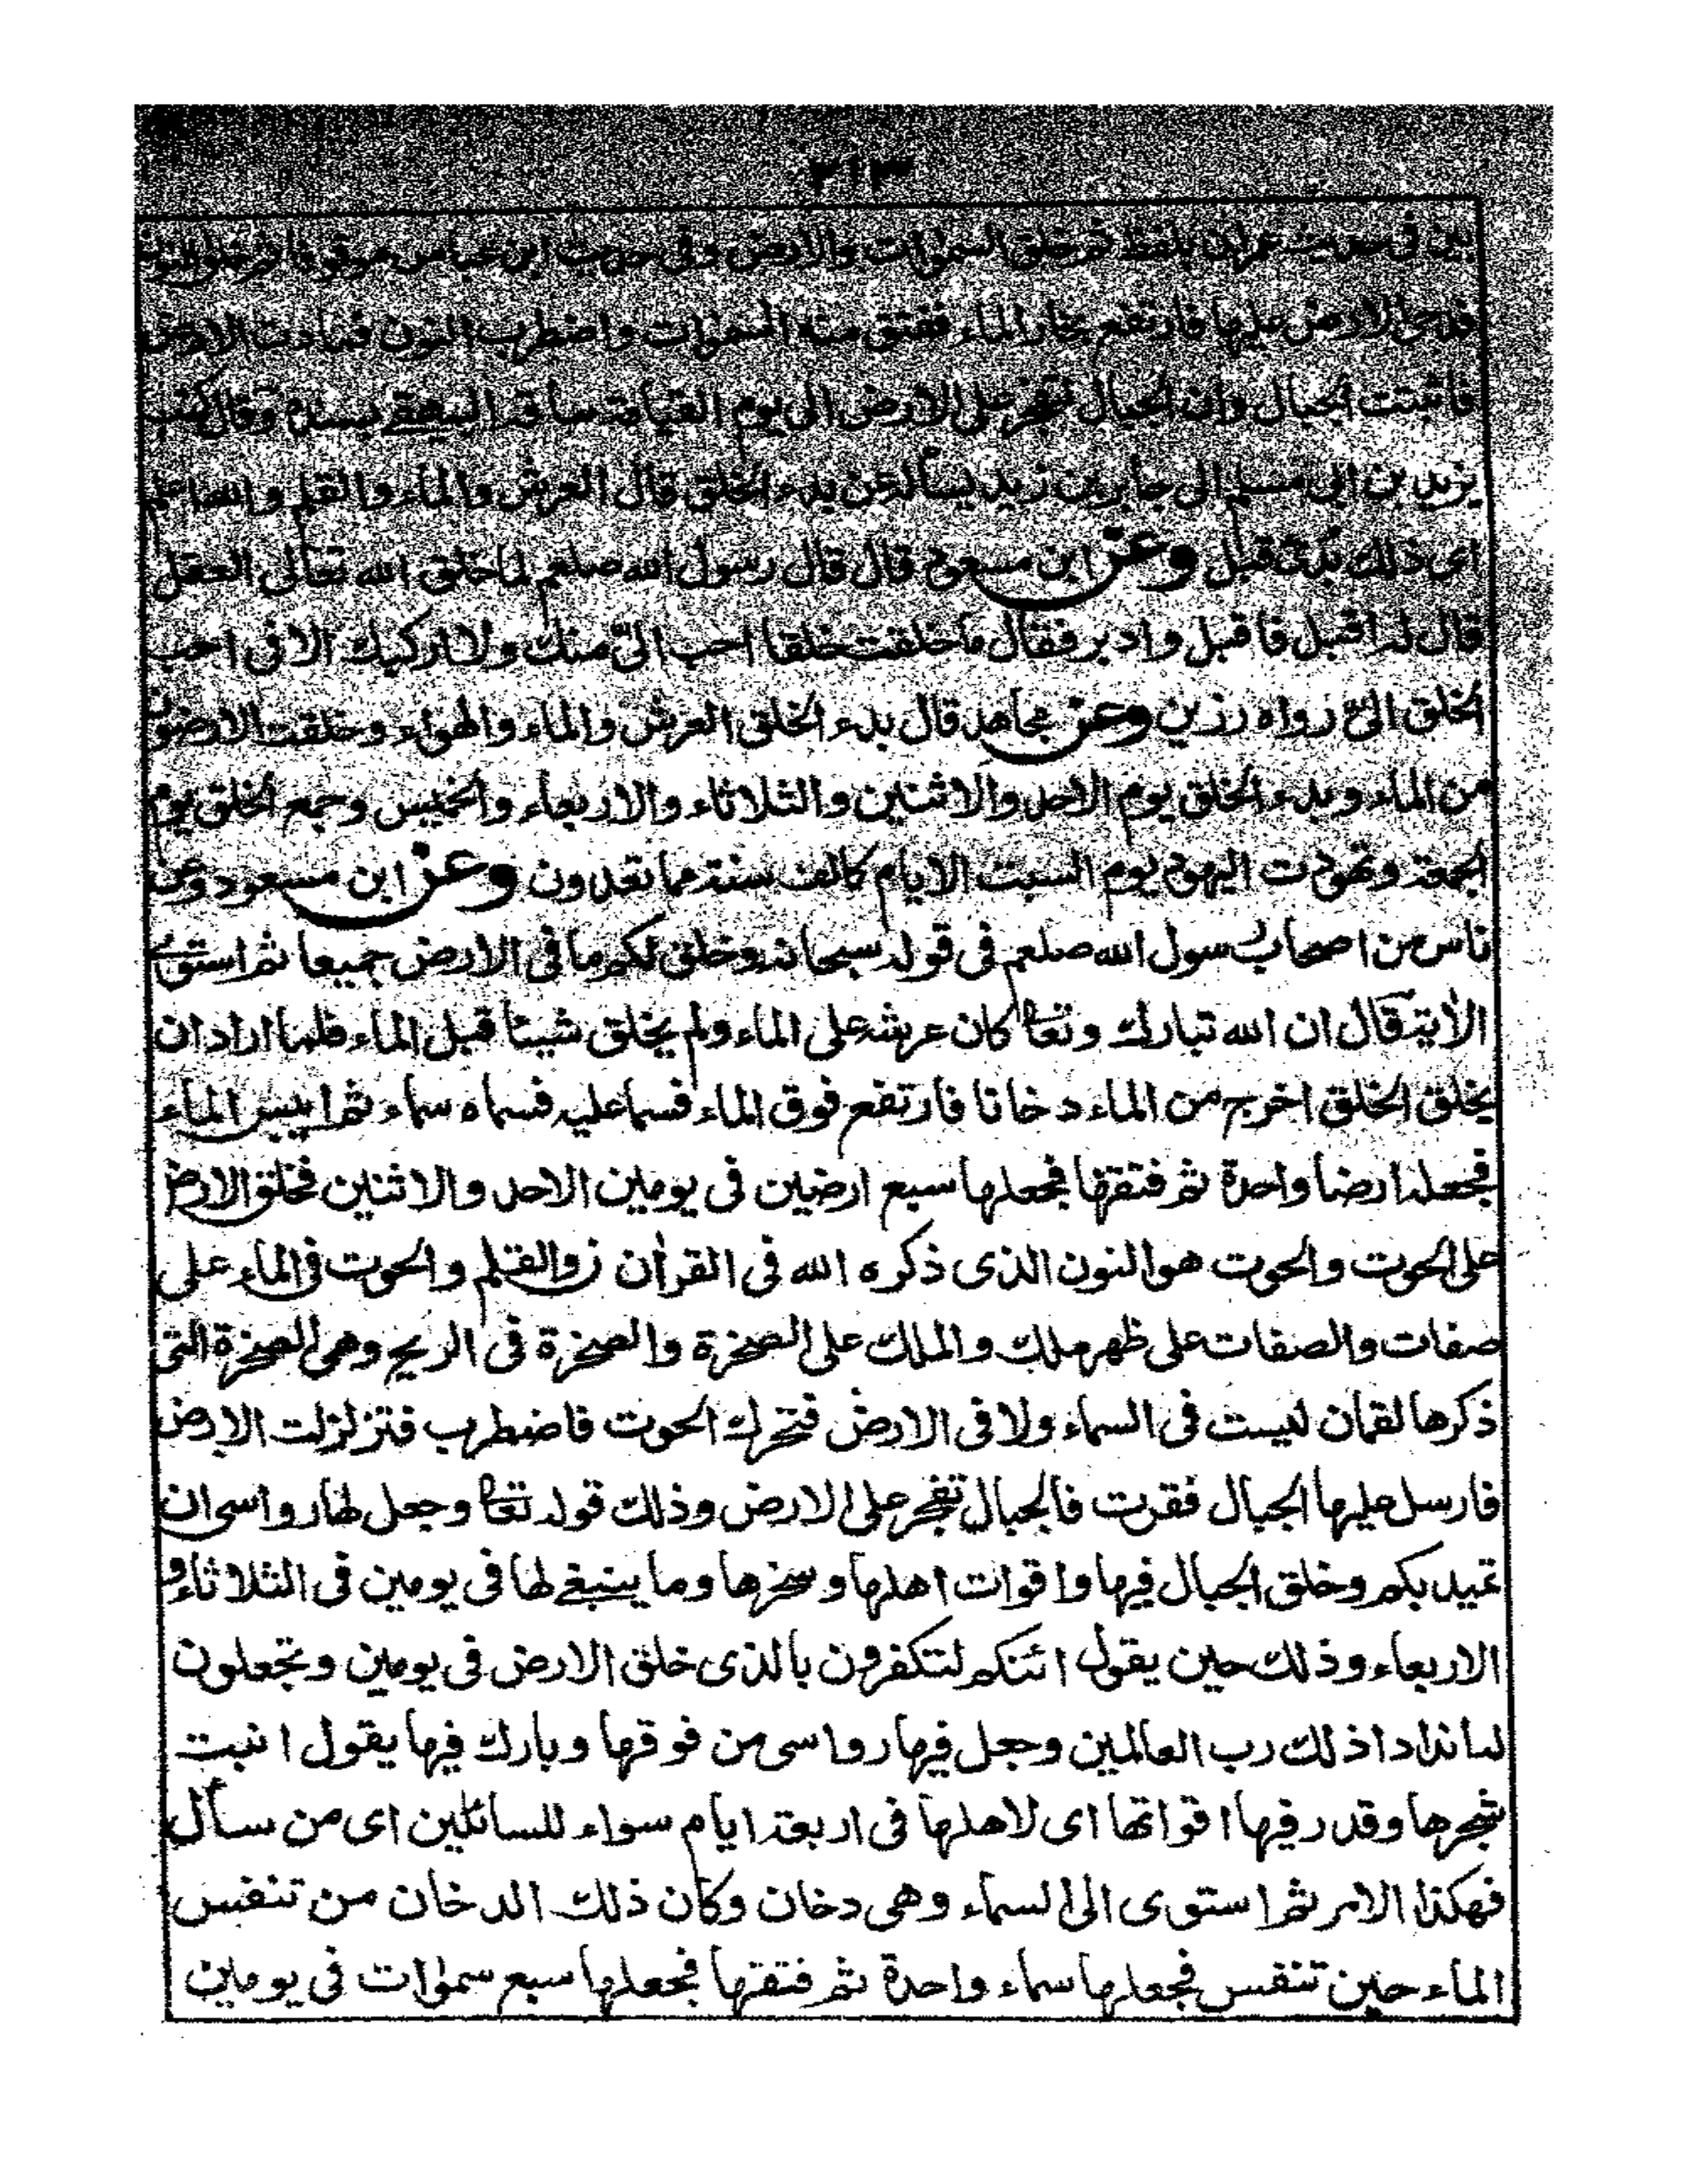 ٣١٣
بين فى حديث عمران بلفظ ثم خلق السموات والارض وفى حديث ابن عباس موقوفا ثم خلق النون
فدحى الارض عليها فارتفع بخار الماء ففتق منه السموات واضطرب النون فمادت الارض
فاثبتت الجبال وان الجبال لتفخر على الارض الى يوم القيامة ساقه البيهقى بسنده وقال كتب
يزيد بن ابى مسلم الى جابر بن زيد يسأله عن بدء الخلق قال العرش والماء والقلم والله اعلم
اى ذلك بدئ قبل وعن ابن مسعود قال قال رسول الله صلعم لما خلق الله تعالى العقل
قال له اقبل فاقبل وادبر فقال ما خلقت خلقا احب الىّ منك ولا اركبك الا فى احب
الخلق الىّ رواه رزين وعن مجاهد قال بدء الخلق العرش والماء والهواء وخلقت الارضون
من الماء وبدء الخلق يوم الاحد والاثنين والثلاثاء والاربعاء والخميس وجمع الخلق يوم
الجمعة وتهودت اليهود يوم السبت الايام كالف سنة مما تعدون وعن ابن مسعود وعن
ناس من اصحاب رسول الله صلعم فى قوله سبحانه وخلق لكم ما فى الارض جميعا ثم استوى
الاٰية قال ان الله تبارك وتعا كان عرشه على الماء ولم يخلق شيئا قبل الماء فلما اراد ان
يخلق الخلق اخرج من الماء دخانا فارتفع فوق الماء فسما عليه فسماه سماء ثم ايبس الماء
فجعله ارضا واحدة ثم فتقها فجعلها سبع ارضين فى يومين الاحد والاثنين فخلق الارض
على الحوت والحوت هو النون الذى ذكره الله فى القراٰن ن والقلم والحوت فى الماء على
صفات والصفات على ظهر ملك والملك على الصخرة والصخرة فى الريح وهى الصخرة التى
ذكرها لقمان ليست فى السماء ولا فى الارض فتحرك الحوت فاضطرب فتزلزلت الارض
فارسل عليها الجبال فقرت فالجبال تفخر على الارض وذلك قوله تعا وجعل لها رواسى ان
تميد بكم وخلق الجبال فيها واقوات اهلها وسخرها وما ينبغى لها فى يومين فى الثلاثاء و
الاربعاء وذلك حين يقول ائنكم لتكفرون بالذى خلق الارض فى يومين وتجعلون
له اندادا ذلك رب العالمين وجعل فيها رواسى من فوقها وبارك فيها يقول انبت
شجرها وقدر فيها اقواتها اى لاهلها فى اربعة ايام سواء للسائلين اى من سأل
فهكذا الامر ثم استوى الى السماء وهى دخان وكان ذلك الدخان من تنفس
الماء حين تنفس فجعلها سماء واحدة ثم فتقها فجعلها سبع سمٰوات فى يومين